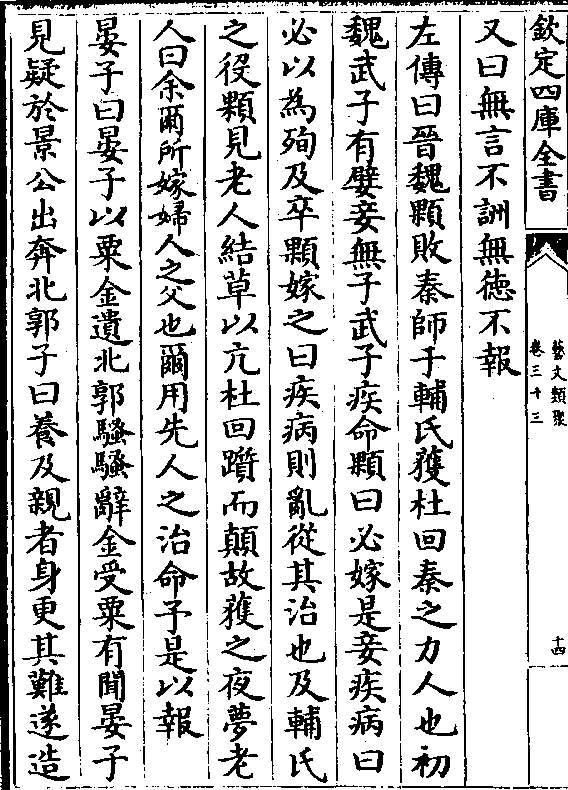 欽定四庫全書
藝文類聚
卷三十三
十四
又曰無言不詶無徳不報
左傳曰晉魏顆敗秦師于輔氏獲杜回秦之力人也初
魏武子有嬖妾無子武子疾命顆曰必嫁是妾疾病曰
必以為殉及卒顆嫁之曰疾病則亂從其治也及輔氏
之役顆見老人結草以亢杜回躓而顛故獲之夜夢老
人曰余爾所嫁婦人之父也爾用先人之治命予是以報
晏子曰晏子以粟金遺北郭騷騷辭金受粟有聞晏子
見疑於景公出奔北郭子曰養及親者身更其難遂造